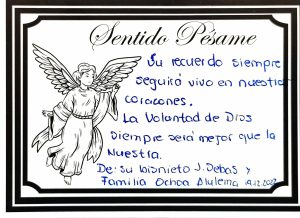 Sentido Pésame
Su recuerdo siempre
seguirá vivo en nuestros
corazones.
La Voluntad de Dios
siempre será mejor que la
Nuestra.
De: Su bisnieto J. Debas y
Familia Ochoa Alulema 19.12.2022